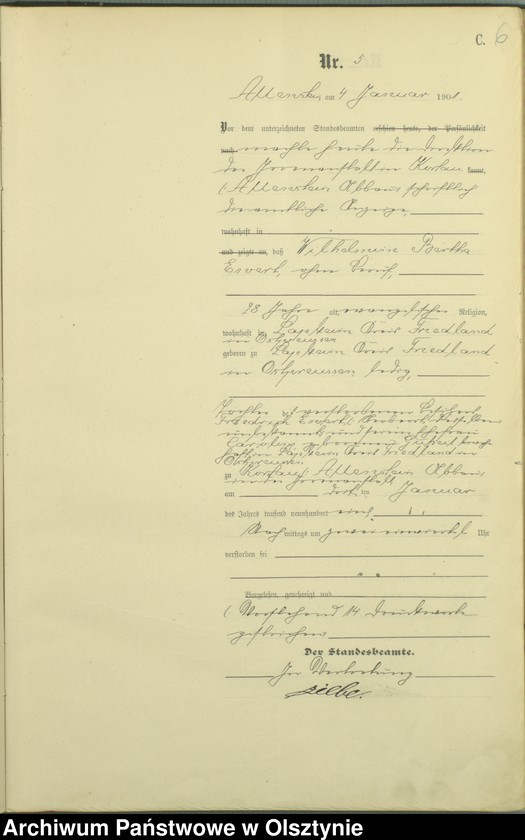 C. 6
Nr. 5
Allenstein, am 4 Januar 1901.
Vor dem unterzeichneten Standesbeamten erschien heute, der Persönlichkeit
nach machte heute die Direktion
der Irrenanstalt in Kortau kannt,
(Allenstein Abbau) schriftlich
die amtliche Anzeige,
wohnhaft in
und zeigte an, daß Wilhelmine Bertha
Ewert, ohne Beruf,
28 Jahre alt, evangelischer Religion,
wohnhaft in Lapstein Kreis Friedland
in Ostpreussen
geboren zu Lapstein Kreis Friedland
in Ostpreussen, ledig,
Tochter verstorbenen Besitzers
Friedrich Ewert,
unbekannt, und seiner Ehefrau
Caroline geborenen
in Lapstein Kreis Friedland in
Ostpreussen
zu Kortau (Allenstein Abbau)
in der Irrenanstalt
am Januar
des Jahres tausend neunhundert eins,
Nach mittags um Uhr
verstorben sei
Vorgelesen, genehmigt und
(Vorstehend 14 Druckworte
gestrichen
Der Standesbeamte.
In Vertretung
Archiwum Państwowe w Olsztynie